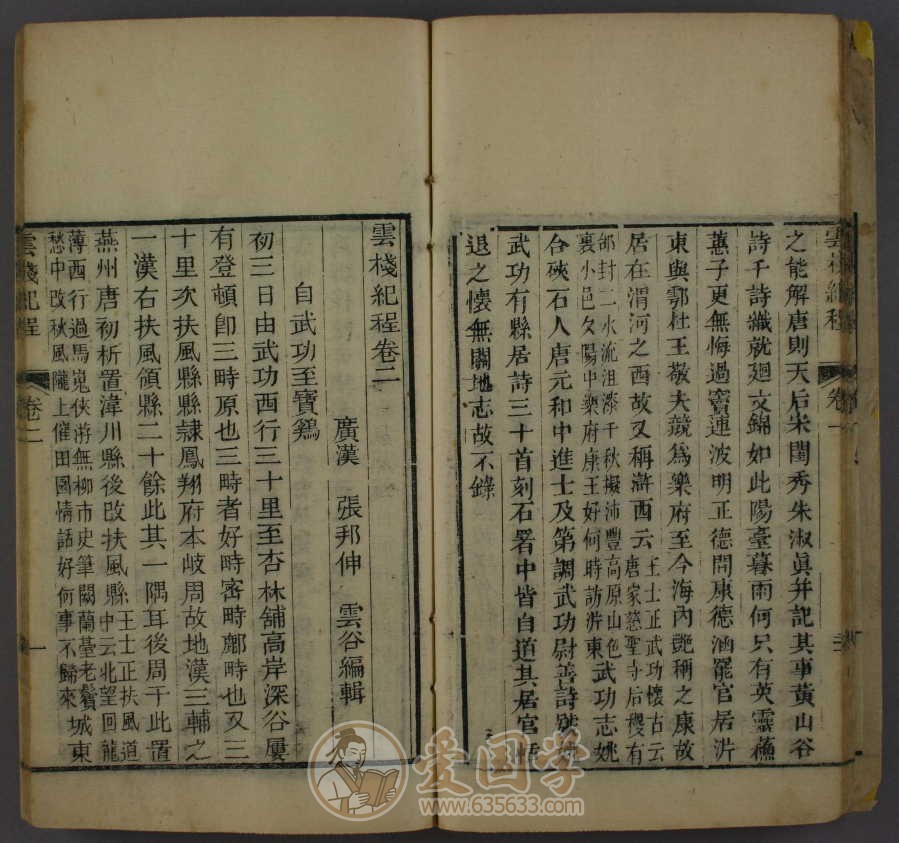 之能解唐則天后宋閨秀朱淑眞并記其事黃山谷
詩千詩織就廻文錦如此陽臺暮雨何只有英靈蘓
蕙子更無悔過竇連波明正德間康德涵罷官居沜
東與鄠杜王敬夫競爲樂府至今海內艷稱之康故
居在渭河之西故又稱滸西云
王士正武功懷古云
唐家慈聖寺后稷有
邰封二水流沮漆千秋擬沛豐高原山色
裏小邑夕陽中樂府康王好何時訪沜東
武功志姚
合硤石人唐元和中進士及第調武功尉善詩
武功有縣居詩三十首刻石署中皆自道其居官
退之懷無關地志故不錄
雲棧紀程卷二
廣漢 張邦伸 雲谷編輯
自武功至寶鷄
初三日由武功西行三十里至杏林舖高岸深谷屢
有登頓卽三畤原也三畤者好畤密畤鄜畤也又三
十里次扶風縣縣隷鳳翔府本岐周故地漢三輔之
一漢右扶風領縣二十餘此其一隅耳後周于此置
燕州唐初析置湋川縣後改扶風縣
王士正扶風道
中云北望回龍
薄西行過馬嵬俠游無柳市史筆闕蘭臺老鬢
愁中改秋風隴上催田園情話好何事不歸來
城東
雲棧紀程
卷二
一
卷一
www.635633.com
爱国学